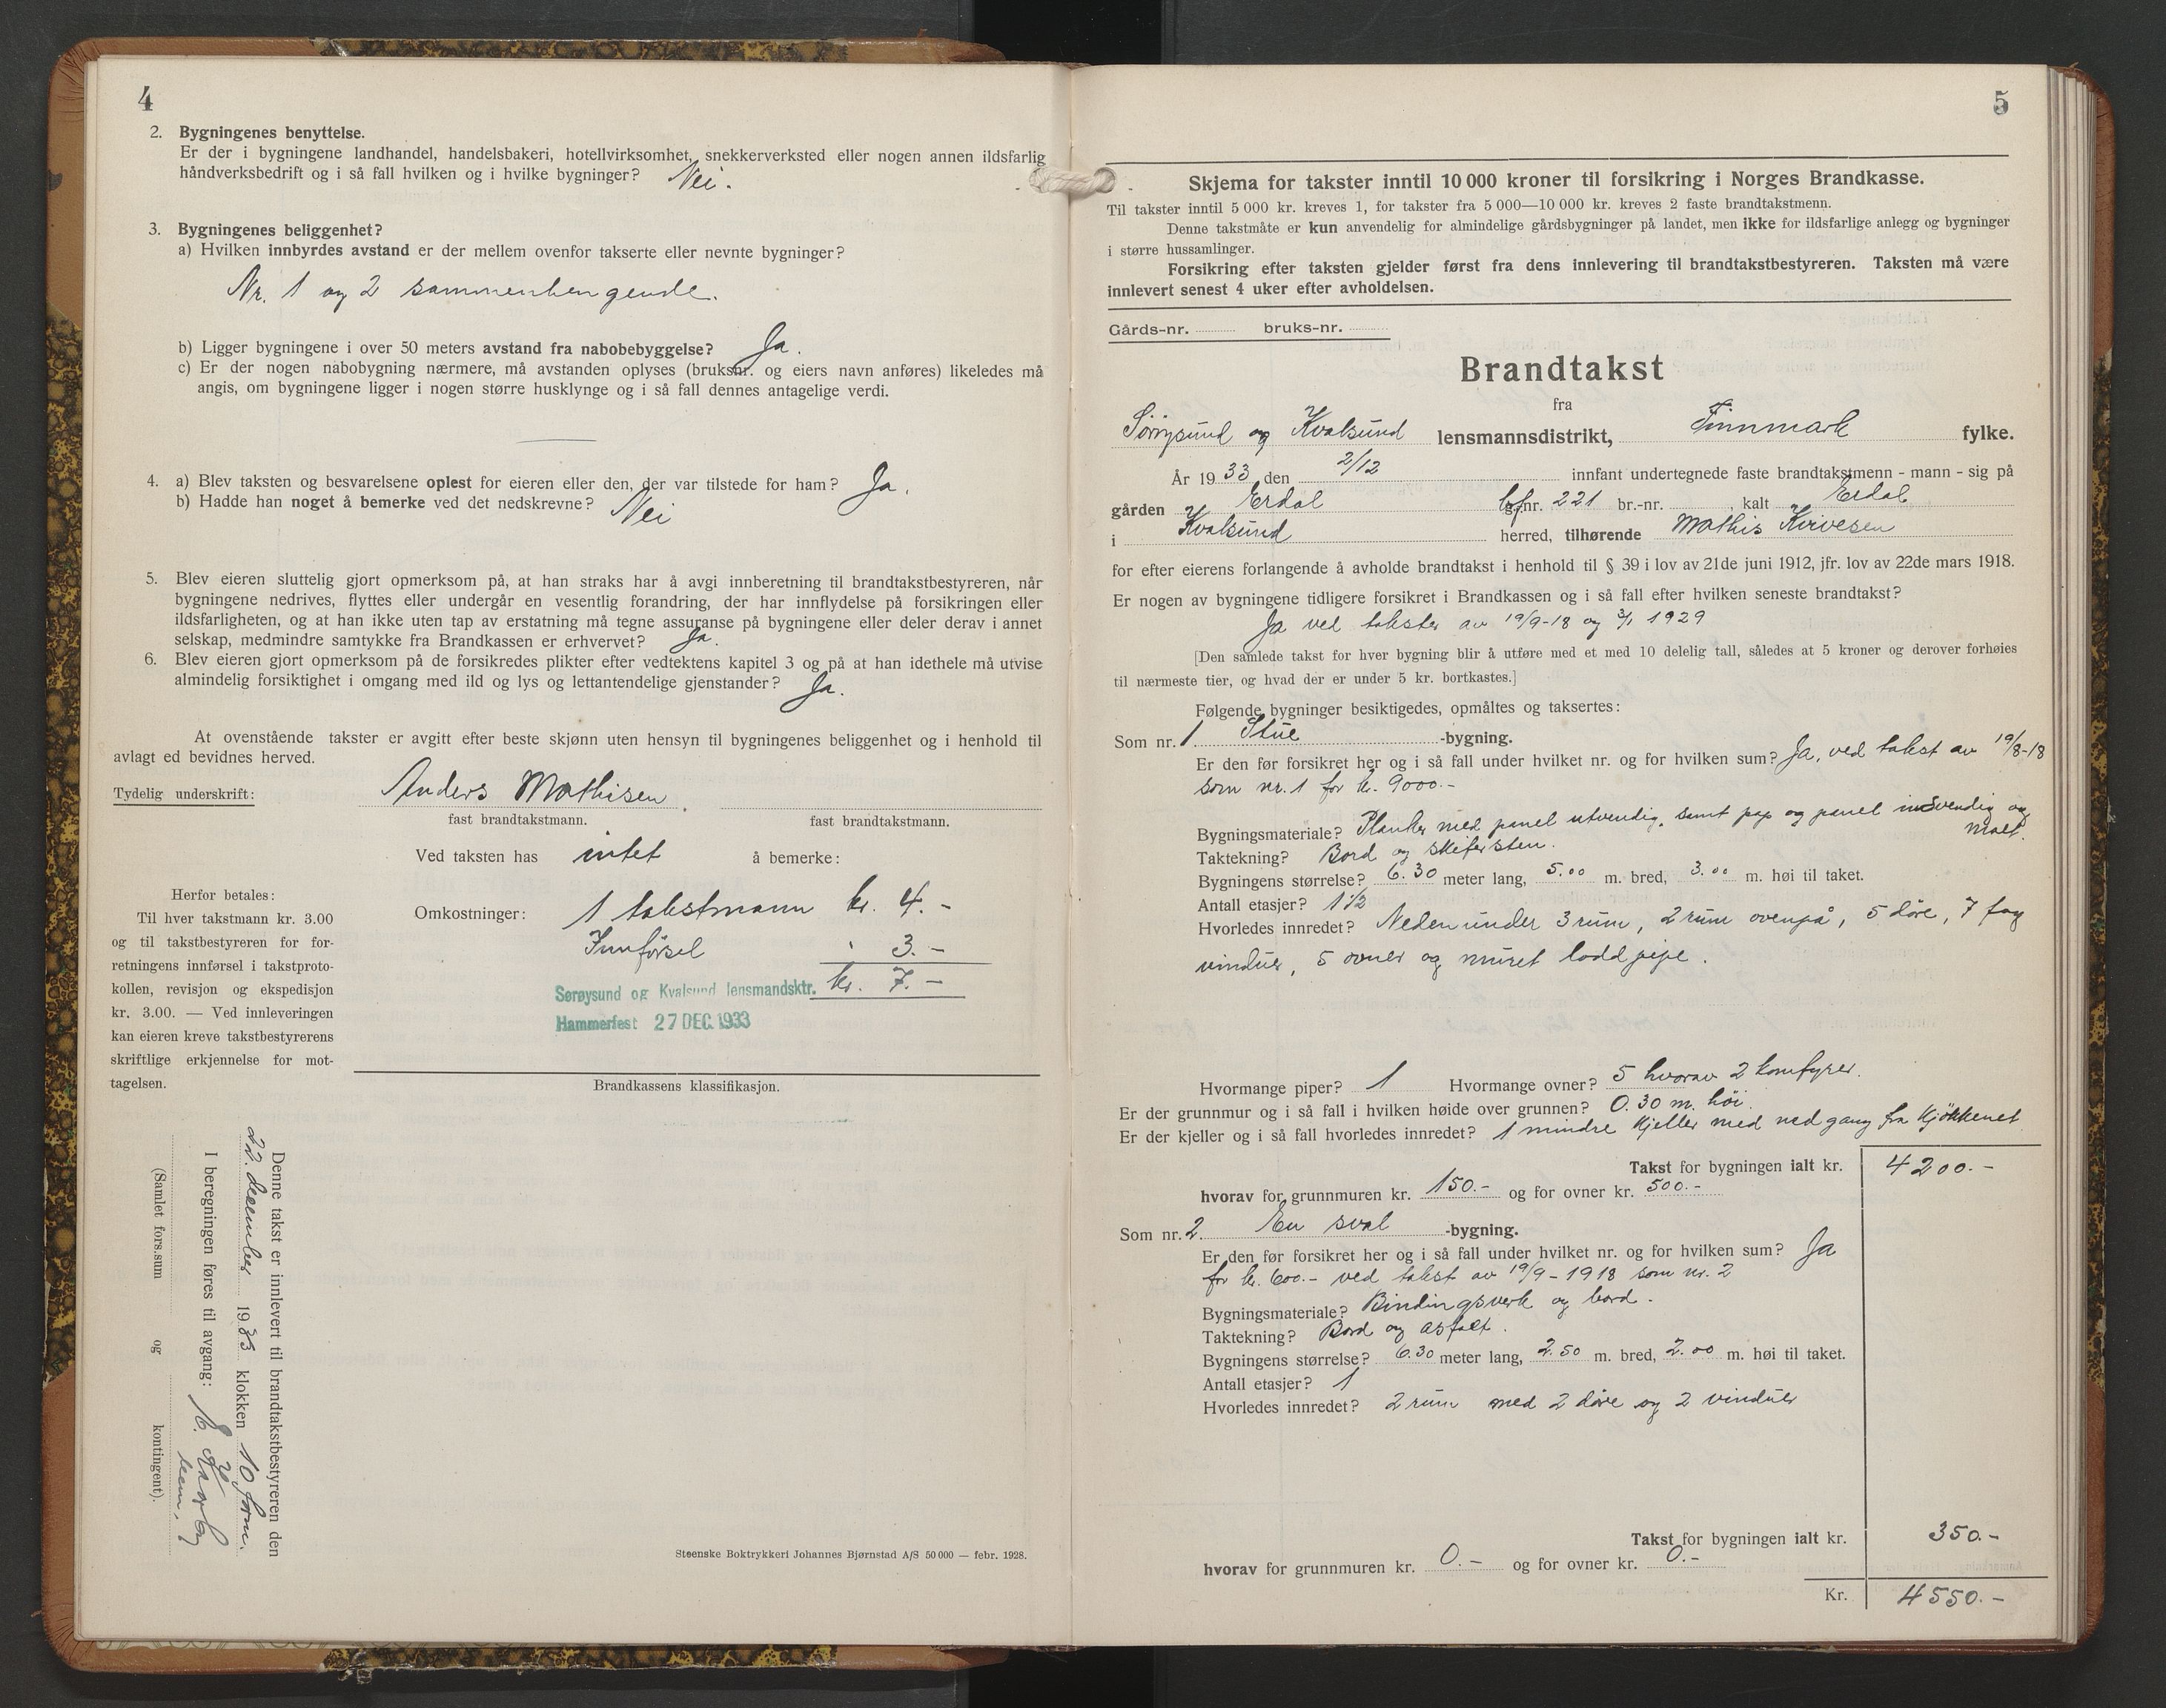 4
2. Bygningenes benyttelse.
Er der i bygningene landhandel, handelsbakeri, hotellvirksomhet, snekkerverksted eller nogen annen ildsfarlig
håndverksbedrift og i så fall hvilken og i hvilke bygninger? Nei.
3. Bygningenes beliggenhet?
a) Hvilken innbyrdes avstand er der mellem ovenfor takserte eller nevnte bygninger?
Nr. 1 og 2 sammenhengende.
b) Ligger bygningene i over 50 meters avstand fra nabobebyggelse? Ja.
c) Er der nogen nabobygning nærmere, må avstanden oplyses (bruksnr. og eiers navn anføres) likeledes må
angis, om bygningene ligger i nogen større husklynge og i så fall dennes antagelige verdi.
4. a) Blev taksten og besvarelsene oplest for eieren eller den, der var tilstede for ham? Ja.
b) Hadde han noget å bemerke ved det nedskrevne? Nei
5. Blev eieren sluttelig gjort opmerksom på, at han straks har å avgi innberetning til brandtakstbestyreren, når
bygningene nedrives, flyttes eller undergår en vesentlig forandring, der har innflydelse på forsikringen eller
ildsfarligheten, og at han ikke uten tap av erstatning må tegne assuranse på bygningene eller deler derav i annet
selskap, medmindre samtykke fra Brandkassen er erhvervet? Ja.
6. Blev eieren gjort opmerksom på de forsikredes plikter efter vedtektens kapitel 3 og på at han idethele må utvise
almindelig forsiktighet i omgang med ild og lys og lettantendelige gjenstander? Ja.
At ovenstående takster er avgitt efter beste skjønn uten hensyn til bygningenes beliggenhet og i henhold til
avlagt ed bevidnes herved.
Tydelig underskrift: Anders Mathisen.
fast brandtakstmann. fast brandtakstmann.
Ved taksten has intet å bemerke:
Omkostninger: 1 takstmann kr. 4.-
Innførsel " 3.-
kr. 7.-
Sørøysund og Kvalsund lensmandsktr.
Hammerfest 27 DEC. 1933
Herfor betales:
Til hver takstmann kr. 3.00
og til takstbestyreren for for-
retningens innførsel i takstproto-
kollen, revisjon og ekspedisjon
kr. 3.00. — Ved innleveringen
kan eieren kreve takstbestyrerens
skriftlige erkjennelse for mot-
tagelsen.
Brandkassens klassifikasjon.
Denne takst er innlevert til brandtakstbestyreren den
22. december 1933 klokken 10 form.
I beregningen føres til avgang:
(Samlet fors.sum og kontingent).
Steenske Boktrykkeri Johannes Bjørnstad A/S 50 000 — febr. 1928.
5
Skjema for takster inntil 10 000 kroner til forsikring i Norges Brandkasse.
Til takster inntil 5 000 kr. kreves 1, for takster fra 5 000—10 000 kr. kreves 2 faste brandtakstmenn.
Denne takstmåte er kun anvendelig for almindelige gårdsbygninger på landet, men ikke for ildsfarlige anlegg og bygninger
i større hussamlinger.
Forsikring efter taksten gjelder først fra dens innlevering til brandtakstbestyreren. Taksten må være
innlevert senest 4 uker efter avholdelsen.
Gårds-nr. bruks-nr.
Brandtakst
fra
Sörøysund og Kvalsund lensmannsdistrikt, Finnmark fylke.
År 1933 den 2/12 innfant undertegnede faste brandtakstmenn - mann - sig på
gården Erdal bf.nr. 221 br.-nr. kalt Erdal
i Kvalsund herred, tilhørende Mathis Kivesen
for efter eierens forlangende å avholde brandtakst i henhold til § 39 i lov av 21de juni 1912, jfr. lov av 22de mars 1918.
Er nogen av bygningene tidligere forsikret i Brandkassen og i så fall efter hvilken seneste brandtakst?
Ja ved takster av 19/9-18 og 3/1 1929
[Den samlede takst for hver bygning blir å utføre med et med 10 delelig tall, således at 5 kroner og derover forhøies
til nærmeste tier, og hvad der er under 5 kr. bortkastes.]
Følgende bygninger besiktigedes, opmåltes og taksertes:
Som nr. 1 Stue -bygning.
Er den før forsikret her og i så fall under hvilket nr. og for hvilken sum? Ja, ved takst av 19/8-18
som nr. 1 for kr. 9000.-
Bygningsmateriale? Planker med panel utvendig, samt pap og panel innvendig og
malt.
Taktekning? Bord og skifersten.
Bygningens størrelse? 6.30 meter lang, 5.00 m. bred, 3.00 m. høi til taket.
Antall etasjer? 1 1/2
Hvorledes innredet? Nedenunder 3 rum, 2 rum ovenpå, 5 döre, 7 fag
vinduer, 5 ovner og muret loddpipe.
Hvormange piper? 1 Hvormange ovner? 5 hvorav 2 komfyrer.
Er der grunnmur og i så fall i hvilken høide over grunnen? 0.30 m. höi.
Er der kjeller og i så fall hvorledes innredet? 1 mindre kjeller med nedgang fra kjökkenet
Takst for bygningen ialt kr. 4200.-
hvorav for grunnmuren kr. 150.- og for ovner kr. 500.-
Som nr. 2. En sval -bygning.
Er den før forsikret her og i så fall under hvilket nr. og for hvilken sum? Ja
for kr. 600.- ved takst av 19/9-1918 som nr. 2
Bygningsmateriale? Bindingsverk og bord.
Taktekning? Bord og asfalt.
Bygningens størrelse? 6.30 meter lang, 2.50 m. bred, 2.00 m. høi til taket.
Antall etasjer? 1
Hvorledes innredet? 2 rum med 2 döre og 2 vinduer
Takst for bygningen ialt kr. 350.-
hvorav for grunnmuren kr. 0.- og for ovner kr. 0.-
Kr. 4550.-